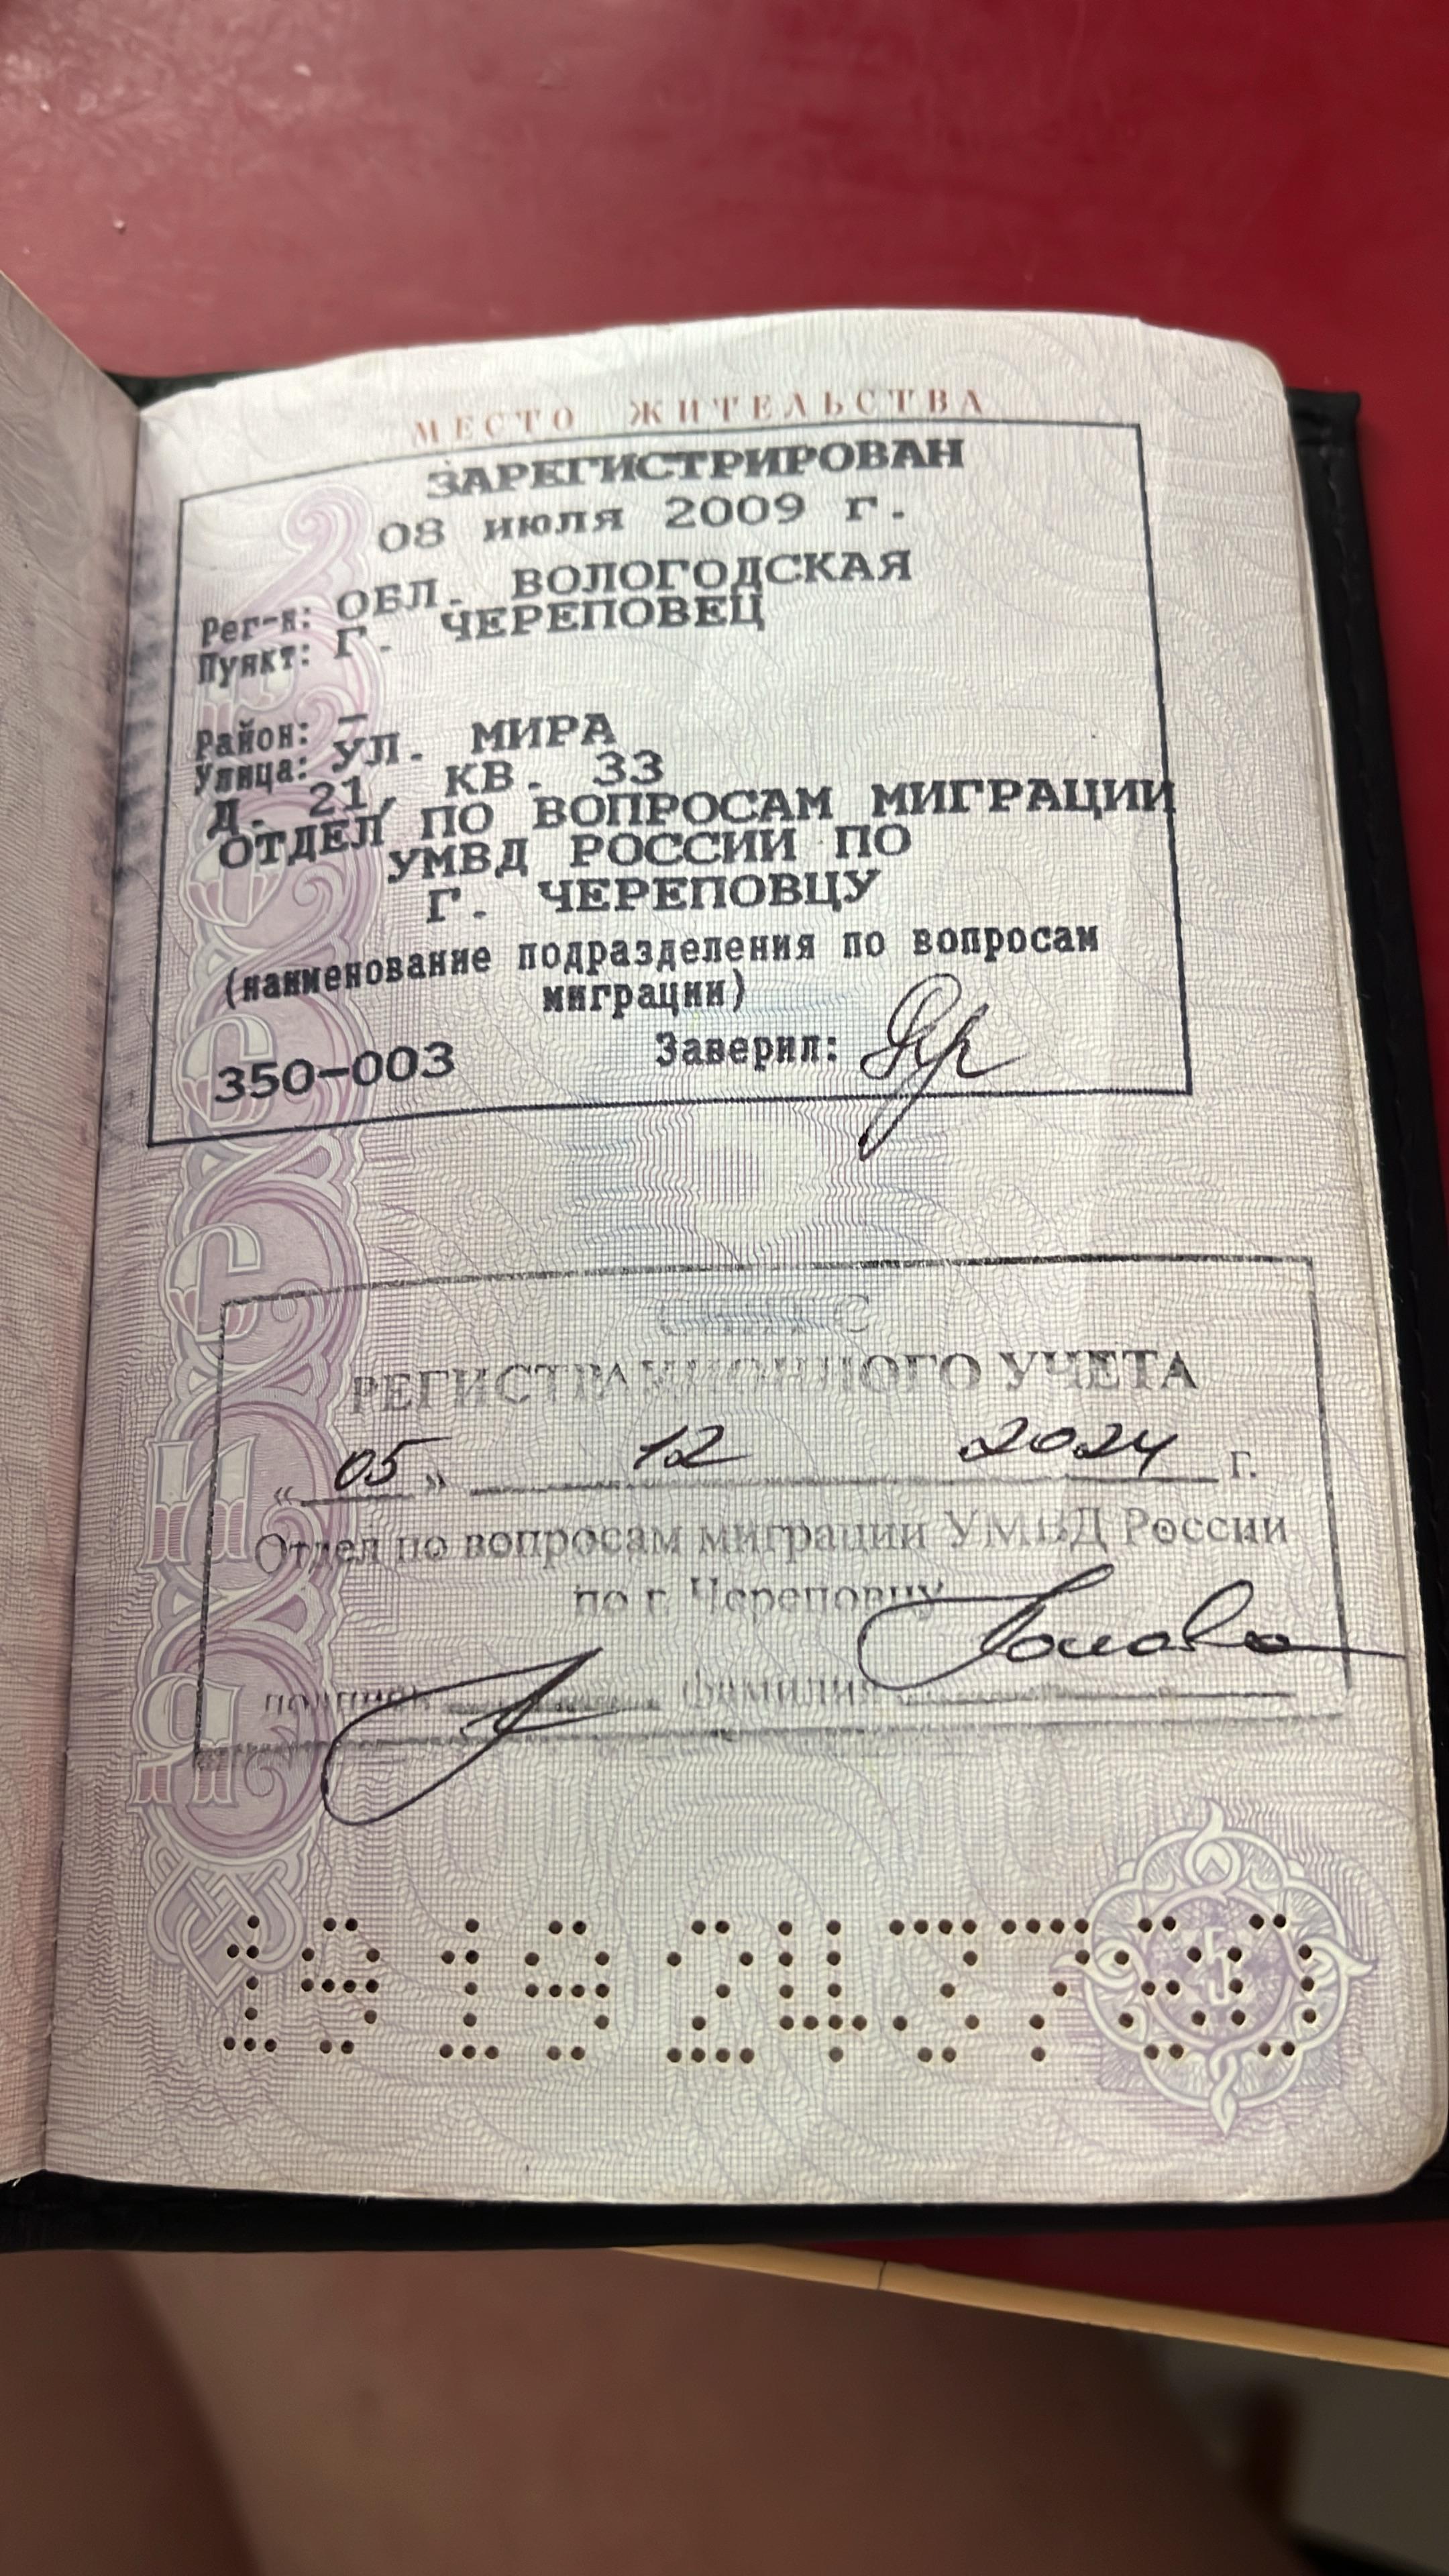 МЕСТО ЖИТЕЛЬСТВА
ЗАРЕГИСТРИРОВАН
08 июля 2009 г.
Рег-н: ОБЛ. ВОЛОГОДСКАЯ
Пункт: Г. ЧЕРЕПОВЕЦ
Район: –
Улица: УЛ. МИРА
Д. 21, КВ. 33
ОТДЕЛ ПО ВОПРОСАМ МИГРАЦИИ
УМВД РОССИИ ПО
Г. ЧЕРЕПОВЦУ
(наименование подразделения по вопросам
миграции)
350-003 Заверил:
РЕГИСТРАЦИОННОГО УЧЕТА
«05» 12 2024 г.
Отдел по вопросам миграции УМВД России
по г. Череповцу
подпись фамилия
РОССИЯ
19 19 247780